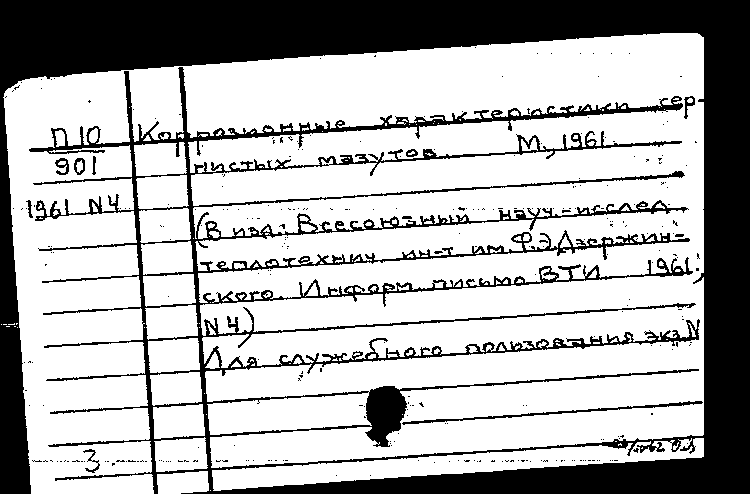 П 10 Коррозионные характеристики сер-
901 нистых мазутов М., 1961.
1961 N4
(В изд.: Всесоюзный науч.-исслед.
теплотехнич. ин-т им. Ф.Э.Дзержин-
ского. Информ. письмо ВТИ 1961,
N 4.)
Для служебного пользования экз. N
3